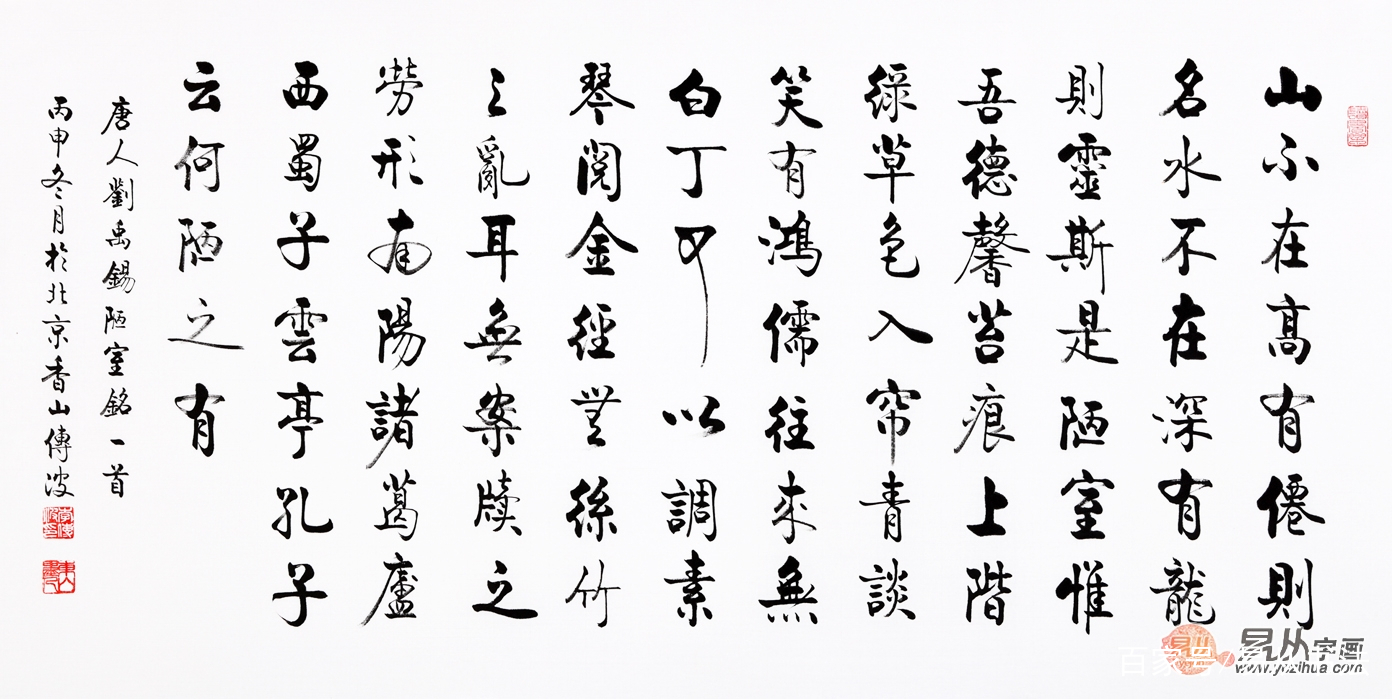 山不在高有僊則
名水不在深有龍
則靈斯是陋室惟
吾德馨苔痕上階
綠草色入帘青談
笑有鴻儒往來無
白丁可以調素
琴閱金經無絲竹
之亂耳無案牘之
勞形南陽諸葛廬
西蜀子雲亭孔子
云何陋之有
唐人劉禹錫陋室銘一首
丙申冬月於北京香山傳波
百家号/易从字画
易从字画
www.yczihua.com